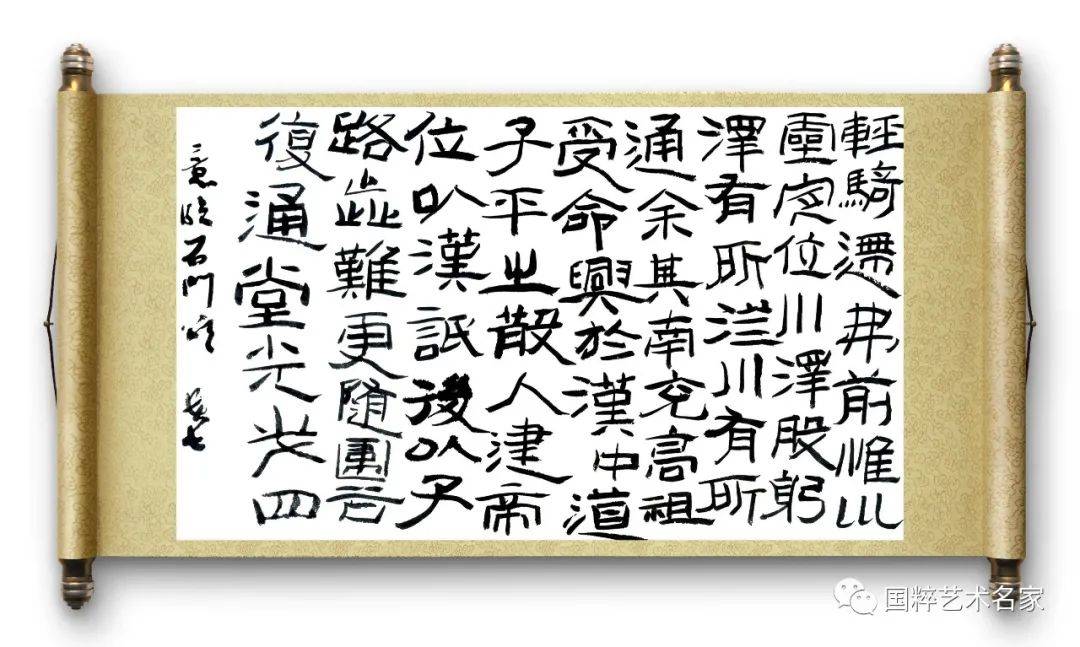 輕騎遰弗前惟巛
靈定位川澤股躬
澤有所注川有所
通余其南充高祖
受命興於漢中道
子平出散人建帝
位以漢詆後以子
路歰難更隨圍谷
復通堂光四
意临石門頌
国粹艺术名家